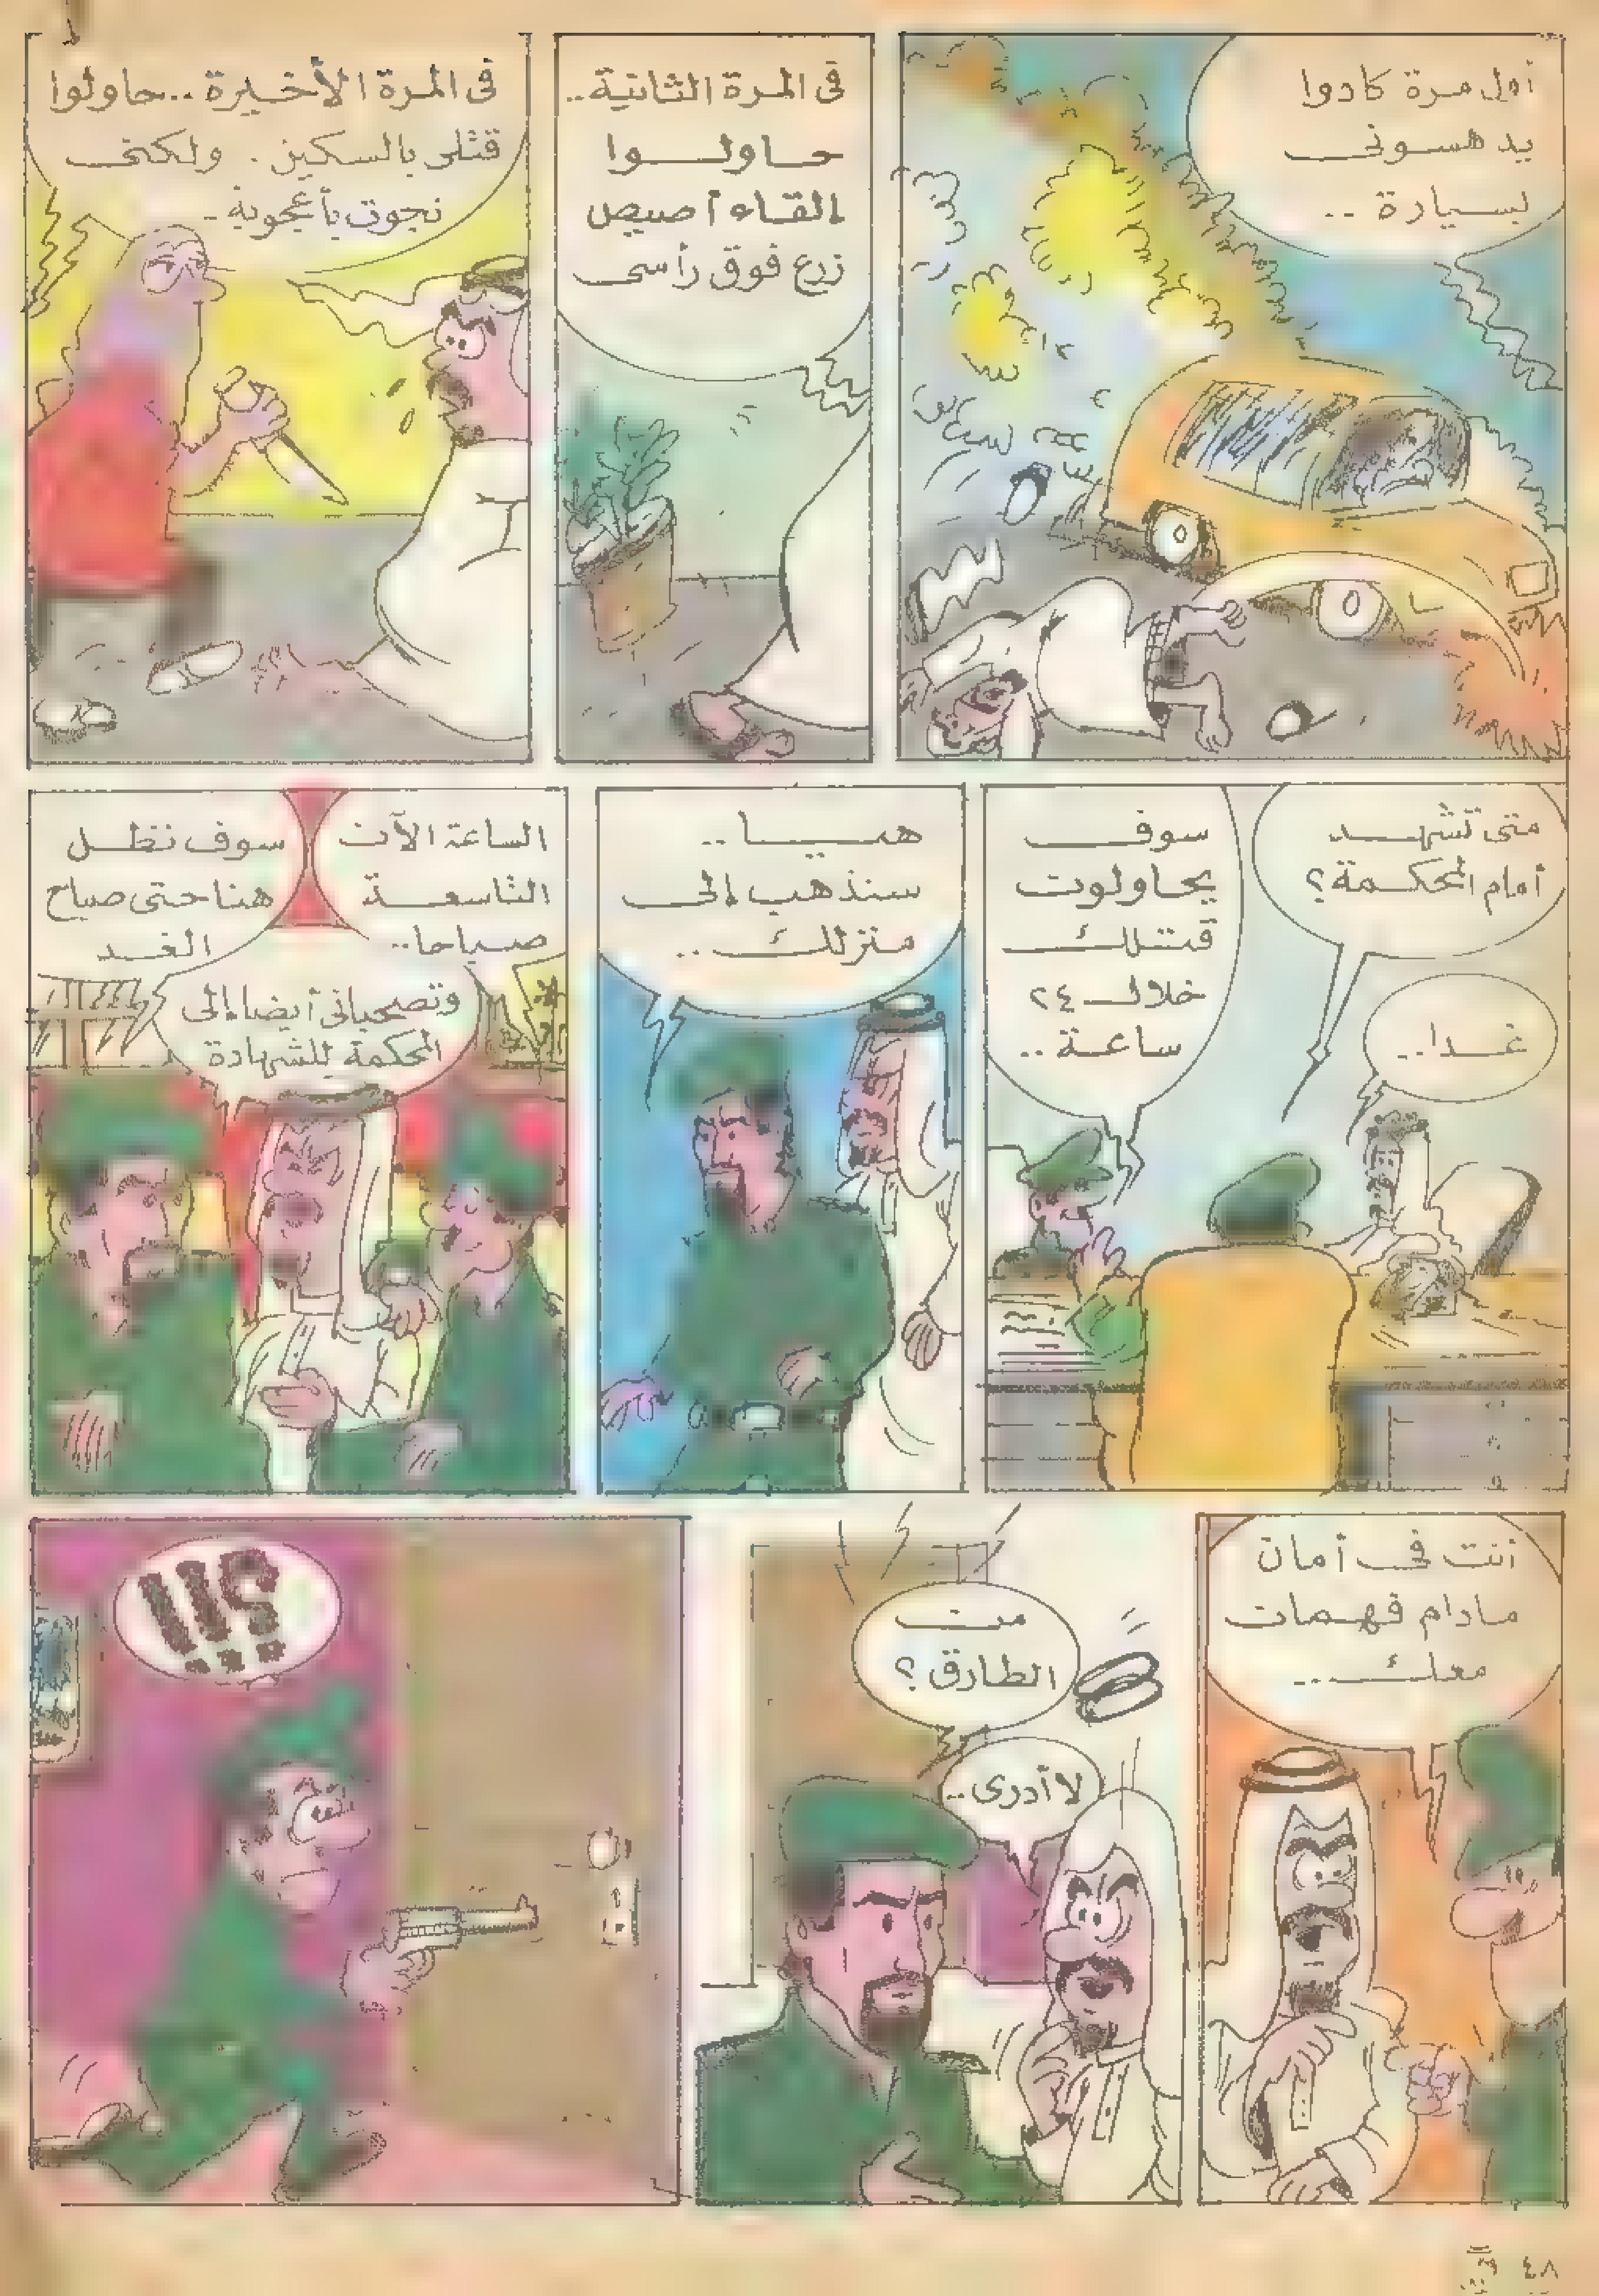 أول مرة كادوا
يدهسونى
بسيارة ..
فى المرة الثانية..
حاولوا
إلقاء أصيص
زرع فوق رأسى
فى المرة الأخيرة..حاولوا
قتلى بالسكين. ولكنى
نجوت بأعجوبة.
متى تشهد
أمام المحكمة؟
غدا..
سوف
يحاولون
قتلك
خلال ٢٤
ساعة ..
هيا ..
سنذهب إلى
منزلك ..
الساعة الآن
التاسعة
صباحا..
سوف نظل
هنا حتى صباح
الغد
وتصحبانى أيضا إلى
المحكمة للشهادة
أنت فى أمان
مادام فهمان
معك ..
من
الطارق؟
لا أدرى..
؟!!
٤٨